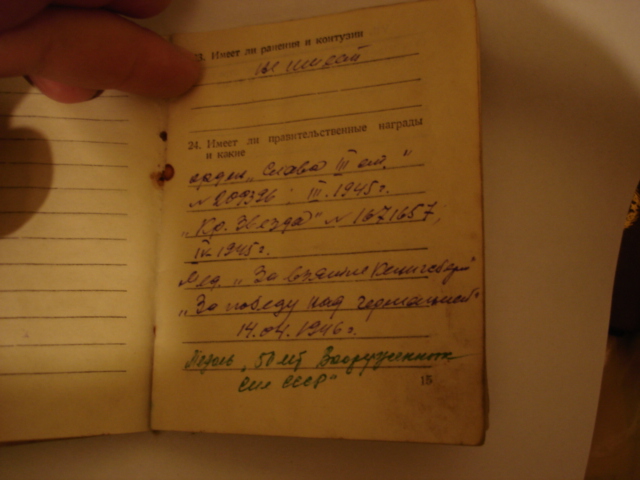 23. Имеет ли ранения и контузии
не имеет
24. Имеет ли правительственные награды
и какие
орден „Слава III ст."
№ 209396; III.1945г.
„Кр. Звезда" № 1671657;
IV 1945г.
Мед. „За взятие Кенигсберга"
„За победу над Германией"
14.04.1946г.
Медаль „50 лет Вооруженных
Сил СССР"
15